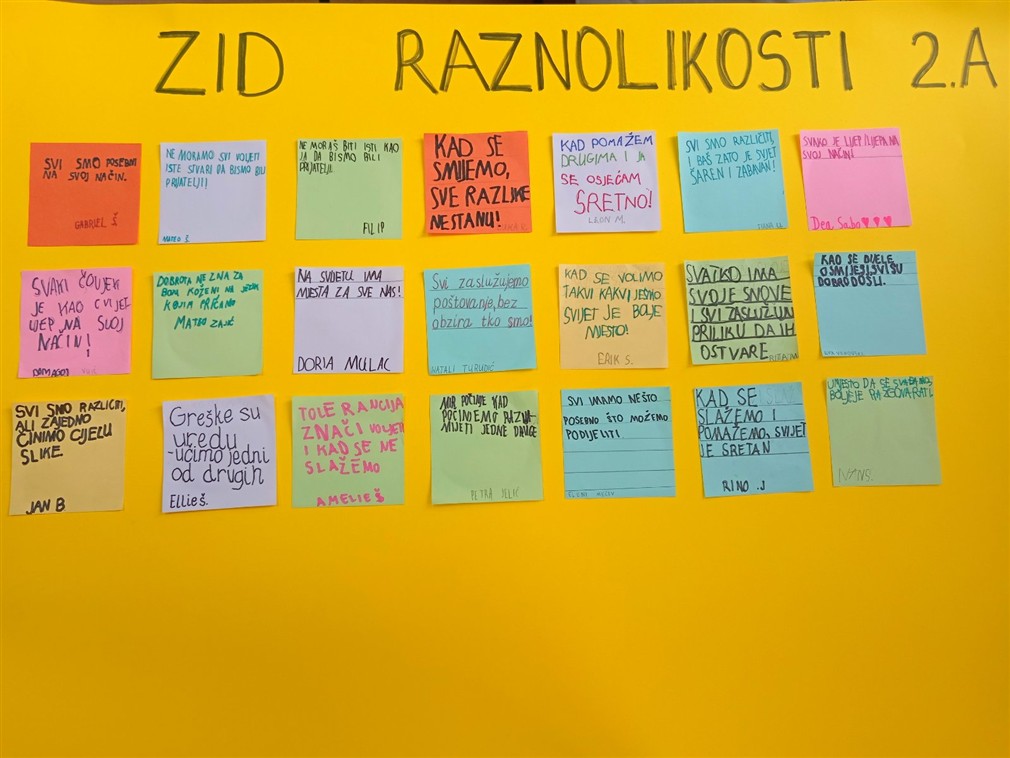 ZID RAZNOLIKOSTI 2.A
SVI SMO POSEBNI
NA SVOJ NAČIN.
GABRIEL Š
NE MORAMO SVI VOLJETI
ISTE STVARI DA BISMO BILI
PRIJATELJI!
MATEO Š.
NE MORAŠ BITI ISTI KAO
JA DA BISMO BILI
PRIJATELJI.
FILIP
KAD SE
SMIJEMO,
SVE RAZLIKE
NESTANU!
KAD POMAŽEM
DRUGIMA I JA
SE OSJEĆAM
SRETNO!
LEON M.
SVI SMO RAZLIČITI,
I BAŠ ZATO JE SVIJET
ŠAREN I ZABAVAN!
SVAKO JE LIJEP/LIJEPA NA
SVOJ NAČIN!
Dea Sabo
SVAKI ČOVJEK
JE KAO CVIJET
LIJEP NA SVOJ
NAČIN!
DOMAGOJ
DOBROTA NE ZNA ZA
BOJU KOŽE NI NA JEZIK
KOJIM PRIČAMO
MATEO ZAJIĆ
NA SVIJETU IMA
MJESTA ZA SVE NAS!
DORIA MULAC
Svi zaslužujemo
poštovanje, bez
obzira tko smo!
NATALI TURUDIĆ
KAD SE VOLIMO
TAKVI KAKVI JESMO
SVIJET JE BOLJE
MJESTO!
ERIK S.
SVATKO IMA
SVOJE SNOVE
I SVI ZASLUŽUJU
PRILIKU DA IH
OSTVARE
KAO SE DIJELE
OSMIJESI, SVI SU
DOBRODOŠLI.
SVI SMO RAZLIČITI,
ALI ZAJEDNO
ČINIMO CIJELU
SLIKE.
JAN B
Greške su
uredu
-učimo jedni
od drugih
Ellie Š.
TOLERANCIJA
ZNAČI VOLJETI
I KAD SE NE
SLAŽEMO
AMELIE Š
MIR POČINJE KAD
POČINJEMO RAZUM-
IJETI JEDNE DRUGE
PETRA JELIĆ
SVI IMAMO NEŠTO
POSEBNO ŠTO MOŽEMO
PODIJELITI.
KAD SE
SLAŽEMO I
POMAŽEMO, SVIJET
JE SRETAN
RINO .J
UMJESTO DA SE SVAĐAMO,
BOLJE JE RAZGOVARATI.
IVAN S.